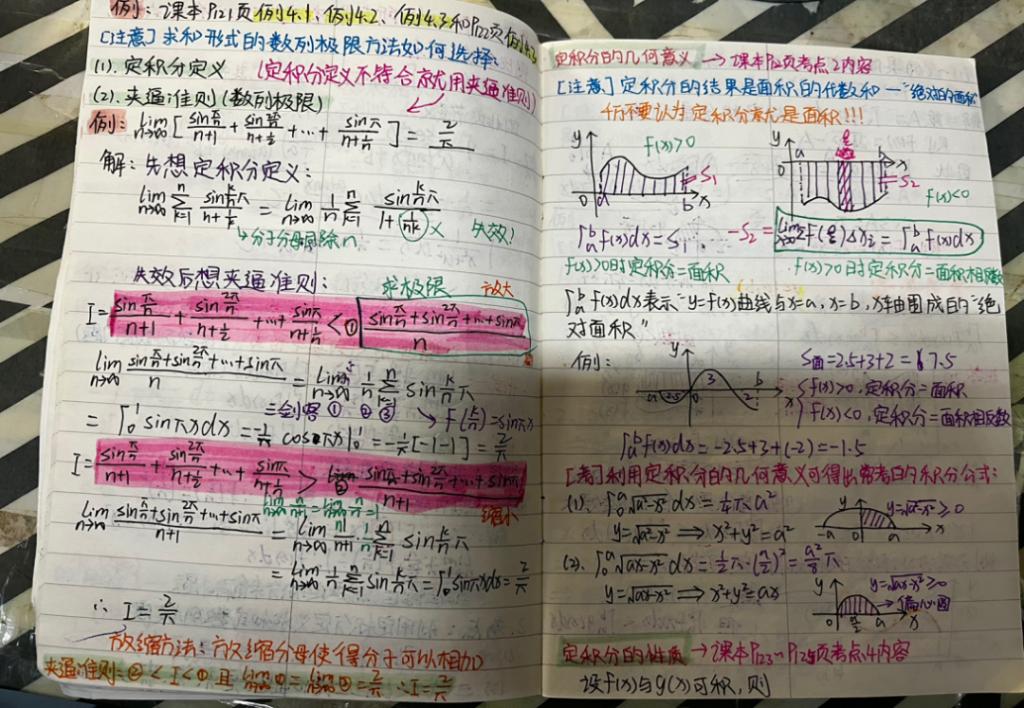 例：课本P121页例4.1、例4.2、例4.3和P122页例4.3
[注意]求和形式的数列极限方法如何选择：
(1).定积分定义 (定积分定义不符合就用夹逼准则)
(2).夹逼准则(数列极限)
例：lim n→∞ [sin π/n / (n+1) + sin 2π/n / (n+1/2) + … + sin π / (n+1/n)] = 2/π
解：先想定积分定义：
lim n→∞ Σ k=1 n sin k/n π / (n+1/k) = lim n→∞ 1/n Σ k=1 n sin k/n π / (1+1/nk) × 失效！
↳分子分母同除n
失效后想夹逼准则： 求极限 放大
I = sin π/n / (n+1) + sin 2π/n / (n+1/2) + … + sin π / (n+1/n) < ① (sin π/n + sin 2π/n + … + sin π) / n
lim n→∞ (sin π/n + sin 2π/n + … + sin π) / n = lim n→∞ 1/n Σ k=1 n sin k/n π
三剑客 ① ② ③ → f(k/n) = sin πx
= ∫0 1 sin πx dx = -1/π cos πx |0 1 = -1/π [-1-1] = 2/π
I = sin π/n / (n+1) + sin 2π/n / (n+1/2) + … + sin π / (n+1/n) > ② (sin π/n + sin 2π/n + … + sin π) / (n+1)
缩小
lim n→∞ (sin π/n + sin 2π/n + … + sin π) / (n+1) = lim n→∞ n/(n+1) · 1/n Σ k=1 n sin k/n π
= lim n→∞ 1/n Σ k=1 n sin k/n π = ∫0 1 sin πx dx = 2/π
∴ I = 2/π
放缩方法：放缩分母使得分子可以相加
夹逼准则：② < I < ①，且 lim n→∞ ① = lim n→∞ ② = 2/π ∴ I = 2/π
定积分的几何意义 → 课本P121页考点2内容
[注意]定积分的结果是面积的代数和一"绝对的面积
千万不要认为定积分就是面积!!!
y f(x)>0 S1 0 a b x
y ξ a b x 0 S2 f(x)<0
∫a b f(x)dx = S1. -S2 = lim λ→0 Σ f(ξ)Δx2 = ∫a b f(x)dx
f(x)>0时定积分=面积 f(x)>0时定积分=面积相反数
∫a b f(x)dx表示"y=f(x)曲线与x=a, x=b, x轴曲围成的"绝
对面积"
例：
y a 2.5 0 3 2 b x
S面=2.5+3+2=7.5
f(x)>0,定积分=面积
f(x)<0,定积分=面积相反数
∫a b f(x)dx = -2.5+3+(-2) = -1.5
[考]利用定积分的几何意义可得出常考的积分公式：
(1). ∫0 a √(a²-x²) dx = 1/4 π a²
y=√(a²-x²) ⟹ x²+y²=a²
y=√(a²-x²) ≥ 0 -a 0 a x
(2). ∫0 a √(ax-x²) dx = 1/2 π·(a/2)² = a²/8 π
y=√(ax-x²) ⟹ x²+y²=ax
y y=√(ax-x²)≥0 偏心圆 0 a/2 a x
定积分的性质 → 课本P123~P124页考点4内容
设f(x)与g(x)可积,则